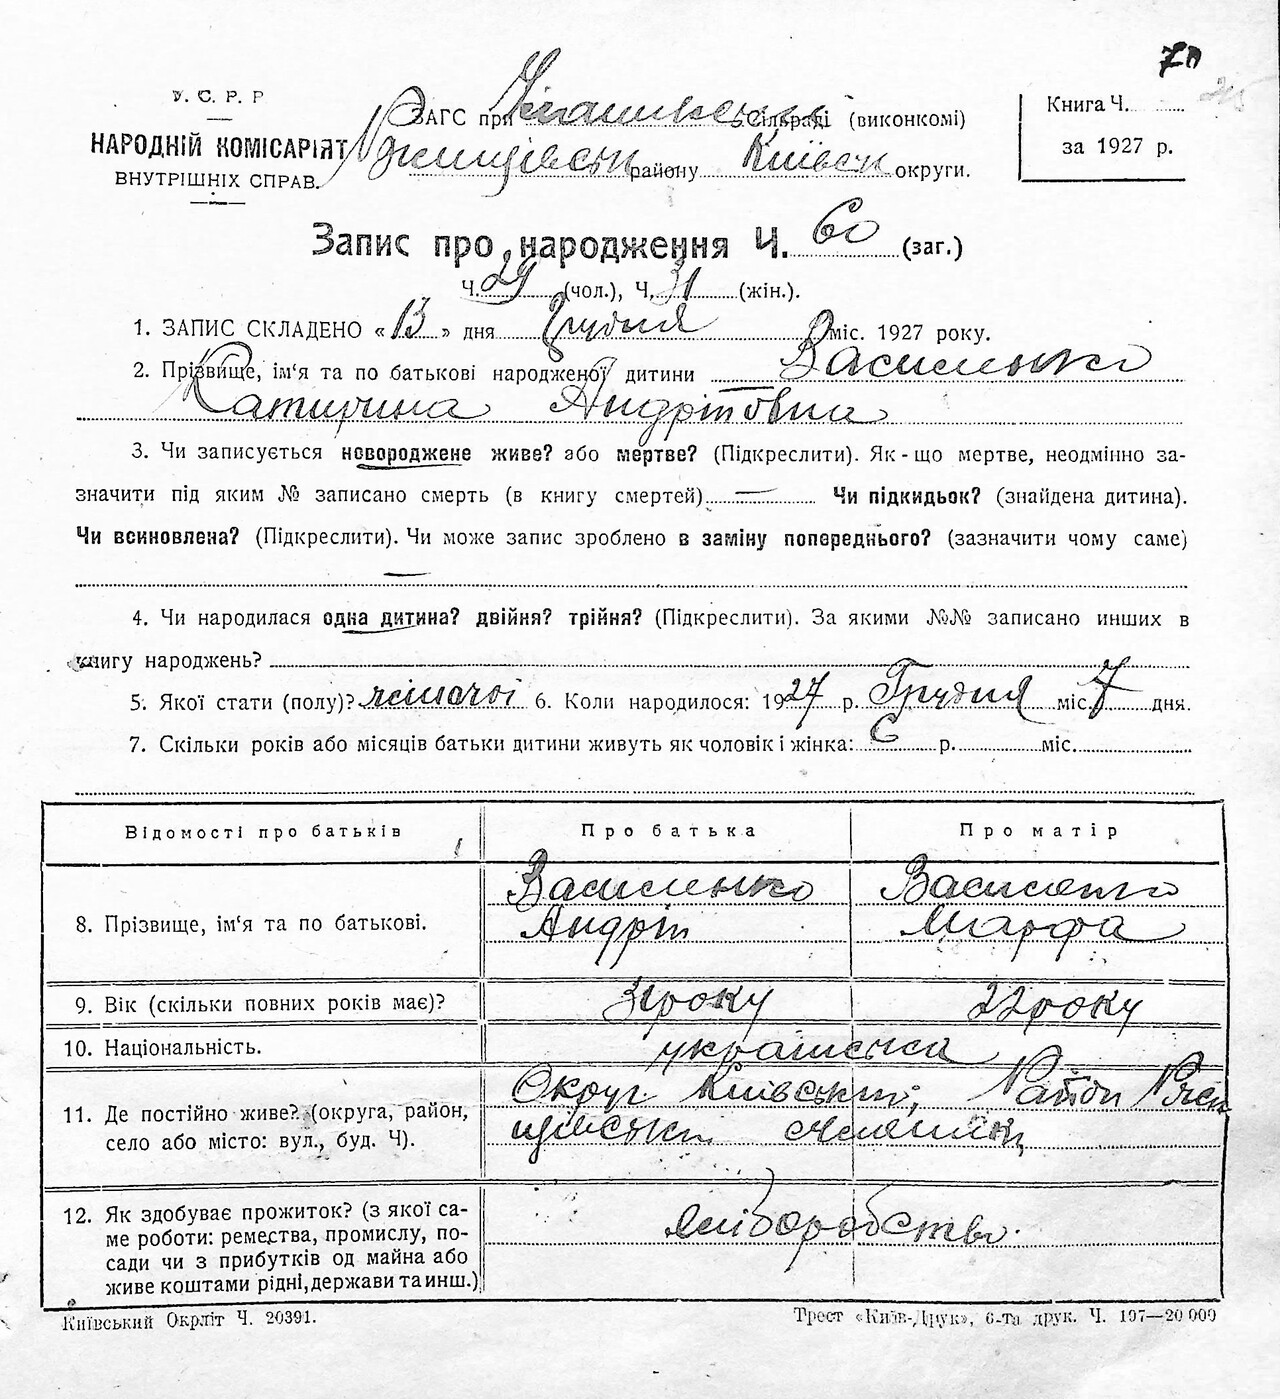 70
У. С. Р. Р
НАРОДНІЙ КОМІСАРІЯТ
ВНУТРІШНІХ СПРАВ.
ЗАГС при Сільраді (виконкомі)
району Київськ округи.
Книга Ч.
за 1927 р.
Запис про народження Ч. 60 (заг.)
Ч. 29 (чол.), Ч. 31 (жін.).
1. ЗАПИС СКЛАДЕНО « 13 » дня Грудня міс. 1927 року.
2. Прізвище, ім‘я та по батькові народженої дитини Василенко
Катирина Андріївна
3. Чи записується новороджене живе? або мертве? (Підкреслити). Як-що мертве, неодмінно за-
значити під яким № записано смерть (в книгу смертей) — Чи підкидьок? (знайдена дитина).
Чи всиновлена? (Підкреслити). Чи може запис зроблено в заміну попереднього? (зазначити чому саме)
—
4. Чи народилася одна дитина? двійня? трійня? (Підкреслити). За якими №№ записано инших в
книгу народжень?
5. Якої стати (полу)? жіночої 6. Коли народилося: 1927 р. Грудня міс. 7 дня.
7. Скільки років або місяців батьки дитини живуть як чоловік і жінка: 6 р. міс.
Відомості про батьків Про батька Про матір
8. Прізвище, ім‘я та по батькові. Василенко Андрій Василенко Марфа
9. Вік (скільки повних років має)? 31 року 22 року
10. Національність. українська
11. Де постійно живе? (округа, район,
село або місто: вул., буд. Ч).
Округ Київський, Район
12. Як здобуває прожиток? (з якої са-
ме роботи: ремества, промислу, по-
сади чи з прибутків од майна або
живе коштами рідні, держави та инш.)
хліборобство.
Київський Окрліт Ч. 20391.
Трест «Київ-Друк», 6-та друк. Ч. 197—20 000